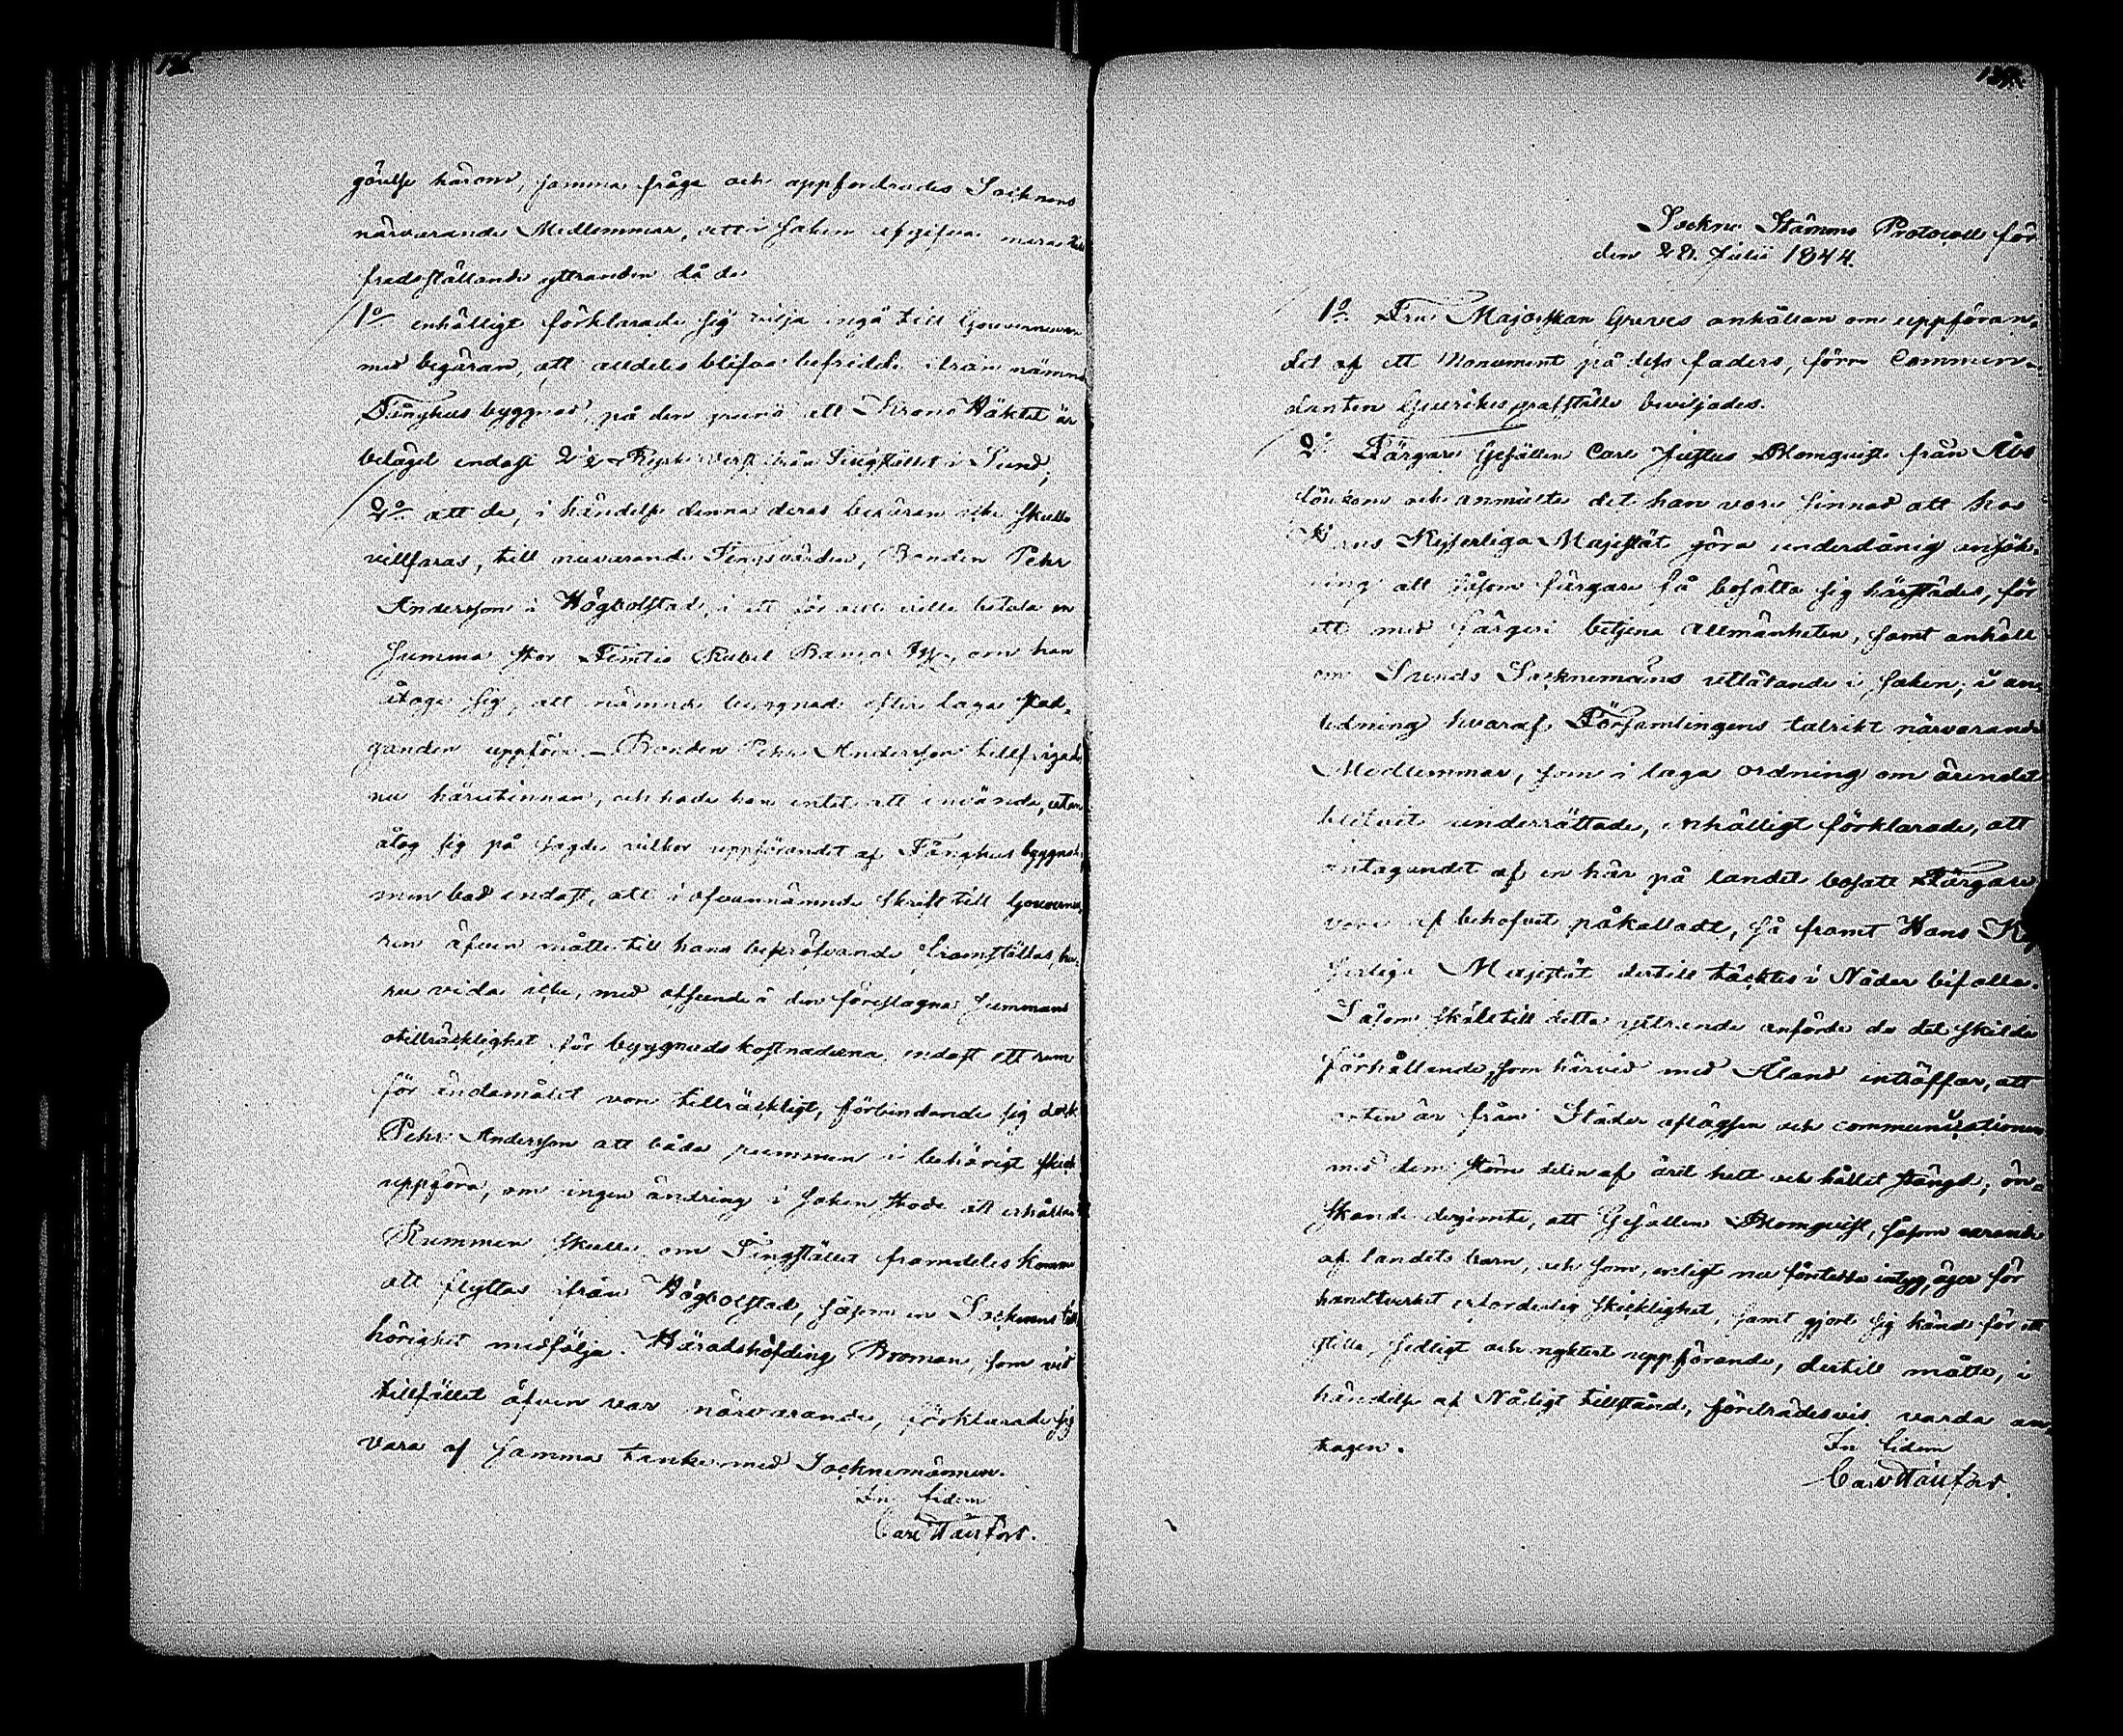 görelse härom, samma fråga och uppfordrades Socknens
närvarande Medlemmar, att i saken afgifva mera till
fredsställande yttranden då de
1o enhälligt förklarade sig vilja ingå till Gouverneuren
med begäran, att alldeles blifva befriade ifrån nämnde
Fånghus byggnad, på den grund att Krono Häktet är
belägit endast 2½ Ryska Verst ifrån Tingstället i Sund;
2o att de, i händelse denna deras begäran icke skulle
villfaras, till nuvarande Tingsvärden, Bonden Pehr
Andersson i Högbolstad, i ett för allt ville betala en
summa stor Femtio Rubel Banco, om han
åtoge sig, att nämnde byggnad efter laga stad-
ganden uppföra. – Bonden Pehr Andersson tillfrågades
nu häröfver, och hade han intet att invända, utan
åtog sig på sagde vilkor uppförandet af Fånghus byggnaden,
men bad endast, att i ofvannämnde skrift till Gouverneu-
ren äfven måtte till hans bepröfvande framställas, hu-
ru vida icke, med afseende å den föreslagna summans
otillräcklighet för byggnads kostnaderna, endast ett rum
för ändamålet vore tillräckligt, förbindande sig dock
Pehr Andersson att båda rummen i behörigt skick
uppföra, om ingen ändring i saken stode att erhålla.
Rummen skulle om Tingstället framdeles komme
att flyttas ifrån Högbolstad, såsom en Socknens till
hörighet medfölja. Häradshöfding Broman, som vid
tillfället äfven var närvarande, förklarade sig
vara af samma tanke med Socknemännen.
In fidem
Carl
137.
Sockne Stämmo Protocoll för
den 28. Julii 1844.
1o Fru Majorskan Greves anhållan om uppföran-
det af ett Monument på dess faders, förre Commen-
danten grafställe beviljades.
2o Färgare Gesällen Carl Justus Blomqvist från Åbo
tillkom och anmälte det han vore sinnad att hos
Hans Kejserliga Majestät göra underdånig ansök-
ning att såsom färgare få bosätta sig härstädes, för
att med färgeri betjena Allmänheten, samt anhöll
om Sunds Socknemäns utlåtande i saken; i an-
ledning hvaraf Församlingens talrikt närvarande
Medlemmar, som i laga ordning om ärendet
blifvit underrättade, enhälligt förklarade, att
antagandet af en här på landet bosatt Färgare
vore af behofvet påkalladt, så framt Hans Kej
serliga Majestät dertill täcktes i Nåder bifalla.
Såsom skäl till detta yttrande anförde de det skilda
förhållande, som härvid med Åland inträffar, att
orten är från Städer aflägsen och communicationen
med dem större delen af året helt och hållet stängd; ön-
skande derjemte, att Gesällen Blomqvist, såsom varande
af landets barn, och som, enligt nu företedda intyg, äger för
handtverket erforderlig skicklighet, samt gjort sig känd för ett
stilla, sedligt och nyktert uppförande, dertill måtte, i
händelse af Nådigt tillstånd, företrädesvis varda an-
tagen.
In fidem
Carl